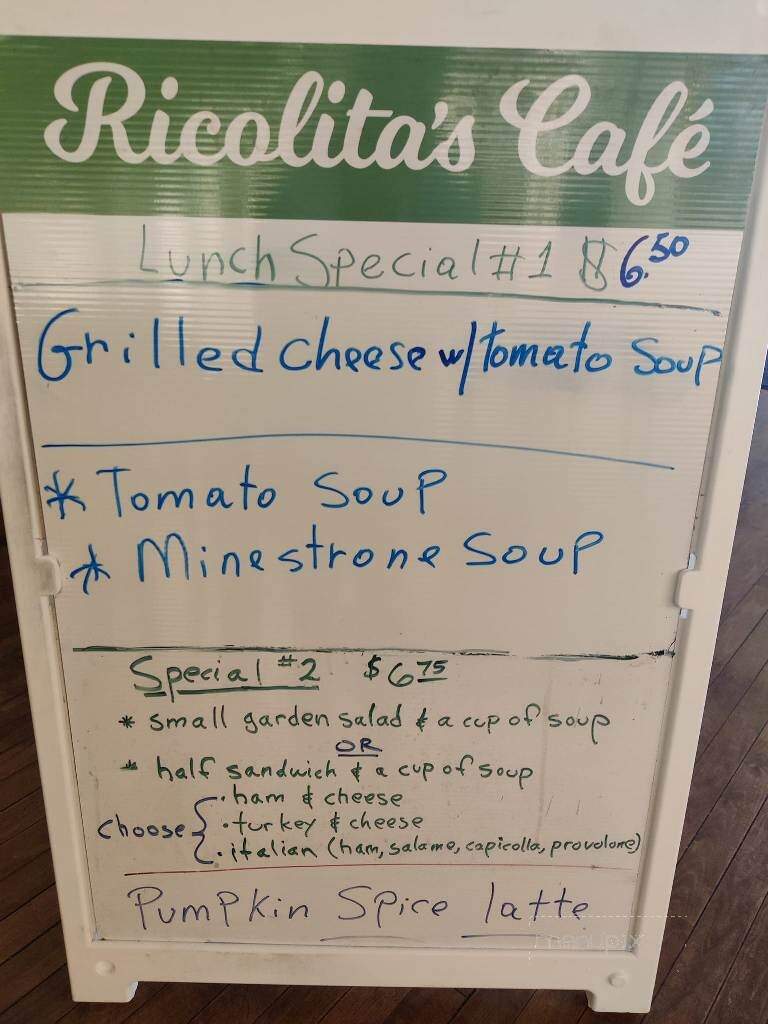 Ricolita's Café
Lunch Special #1 $6.50
Grilled cheese w/tomato Soup
* Tomato Soup
* Minestrone Soup
Special #2 $6 75
* small garden salad & a cup of soup
OR
* half sandwich & a cup of soup
• ham & cheese
choose { • turkey & cheese
• italian (ham, salame, capicolla, provolone)
Pumpkin Spice latte
menupix